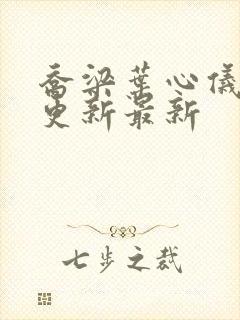 乔梁叶心仪
更新最新
七步之裁